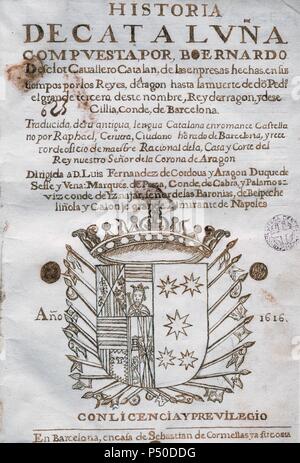 HISTORIA
DE CATALVÑA
COMPVESTA, POR, BOERNARDO
Desclot Cauallero Catalan, de las empresas hechas, en sus
tiempos por los Reyes, de Aragon hasta la muerte de dō Pedº
el grande tercero deste nombre, Rey de rragon, y de se
Cillia, Conde, de Barcelona.
Traducida, de su antigua, lengua Catalana en romance Castella
no por Raphael, Ceruera, Ciudano hōrado de Barcelona, y rec
tor de oficio de maestre Racional dela, Casa y Corte del
Rey nuestro Señor dela Corona de Aragon
Dirigida aD. Luis Fernandez de Cordoua y Aragon Duque de
Sesse y Vena: Marques de Poza, Conde de Cabra, y Palamos
viz conde de Yznajar, señor de las Baronias, de Belpeche
liñola y Calonje gran Almirante de Napoles
Año 1616.
CON LICENCIA Y PREVILEGIO
En Barcelona, en casa de Sebastian de Cormellas ya su costa
alamy
P50DDG